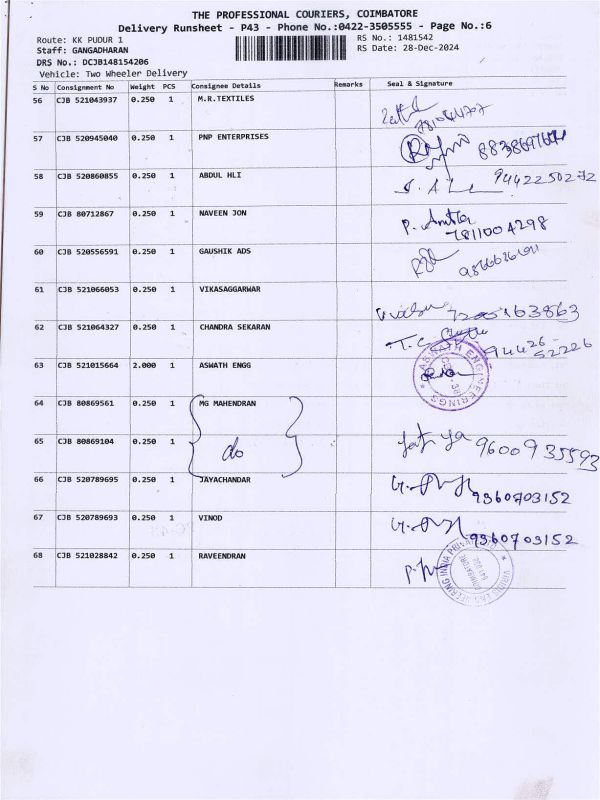 THE PROFESSIONAL COURIERS, COIMBATORE
Delivery Runsheet - P43 - Phone No.:0422-3505555 - Page No.:6
Route: KK PUDUR 1
RS No.: 1481542
Staff: GANGADHARAN
RS Date: 28-Dec-2024
DRS No.: DCJB148154206
Vehicle: Two Wheeler Delivery
S No Consignment No Weight PCS Consignee Details Remarks Seal & Signature
56 CJB 521043937 0.250 1 M.R.TEXTILES
57 CJB 520945040 0.250 1 PNP ENTERPRISES
58 CJB 520860855 0.250 1 ABDUL HLI 9442250272
59 CJB 80712867 0.250 1 NAVEEN JON
7811004298
60 CJB 520556591 0.250 1 GAUSHIK ADS
61 CJB 521066053 0.250 1 VIKASAGGARWAR
62 CJB 521064327 0.250 1 CHANDRA SEKARAN
94426-
52226
63 CJB 521015664 2.000 1 ASWATH ENGG
ASWATH ENGINEERINGS
64 CJB 80869561 0.250 1 MG MAHENDRAN
65 CJB 80869104 0.250 1 do 9600935593
66 CJB 520789695 0.250 1 JAYACHANDAR
9360703152
67 CJB 520789693 0.250 1 VINOD
9360703152
68 CJB 521028842 0.250 1 RAVEENDRAN
COIMBATORE